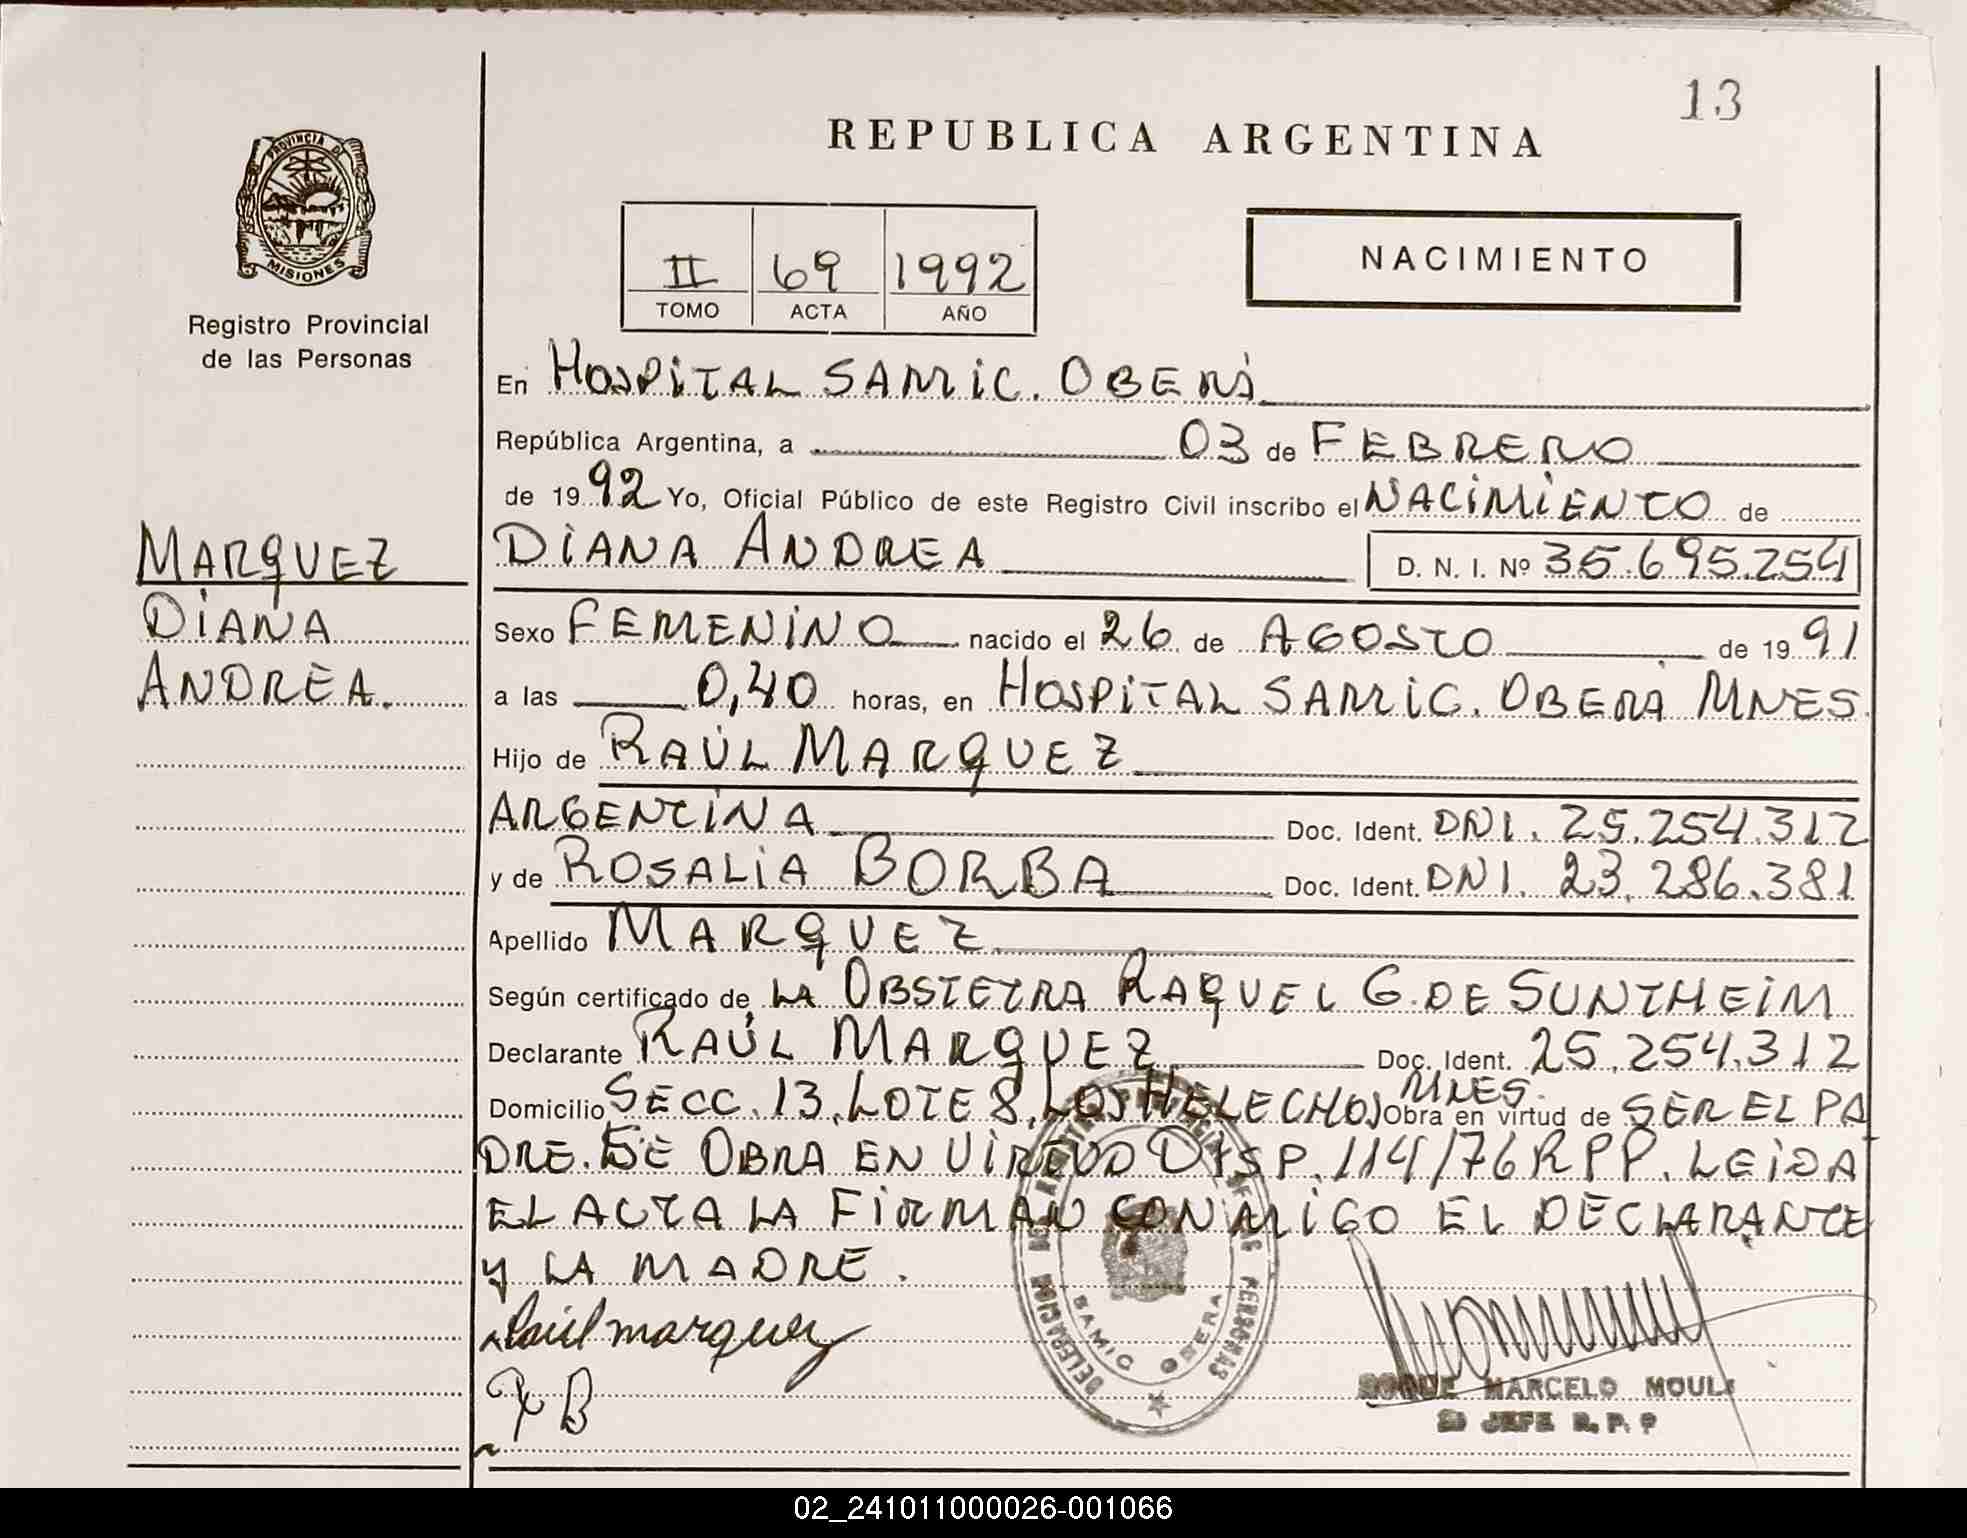 13
REPUBLICA ARGENTINA
PROVINCIA DE
MISIONES
Registro Provincial
de las Personas
II 69 1992
TOMO ACTA AÑO
NACIMIENTO
En HOSPITAL SAMIC. OBERÁ
República Argentina, a 03 de FEBRERO
de 1992 Yo, Oficial Público de este Registro Civil inscribo el NACIMIENTO de
MARQUEZ
DIANA
ANDREA.
DIANA ANDREA D. N. I. Nº 35.695.254
Sexo FEMENINO nacido el 26 de AGOSTO de 1991
a las 0,40 horas, en HOSPITAL SAMIC. OBERÁ MNES.
Hijo de RAÚL MARQUEZ
ARGENTINA Doc. Ident. DNI. 25.254.312
y de ROSALIA BORBA Doc. Ident. DNI. 23.286.381
Apellido MARQUEZ
Según certificado de LA OBSTETRA RAQUEL G. DE SUNTHEIM
Declarante RAÚL MARQUEZ Doc. Ident. 25.254.312
Domicilio SECC. 13, LOTE 8, LOS HELECHOS MNES. Obra en virtud de SER EL PA
DRE. SE OBRA EN VIRTUD DISP. 114/76 RPP. LEIDA
EL ACTA LA FIRMAN CONMIGO EL DECLARANTE
Y LA MADRE.
Raúl marquez
R B
DELEGACION REGISTRO PROVINCIAL DE LAS PERSONAS
SAMIC OBERA
ROQUE MARCELO MOULE
JEFE R. P. P
02_241011000026-001066